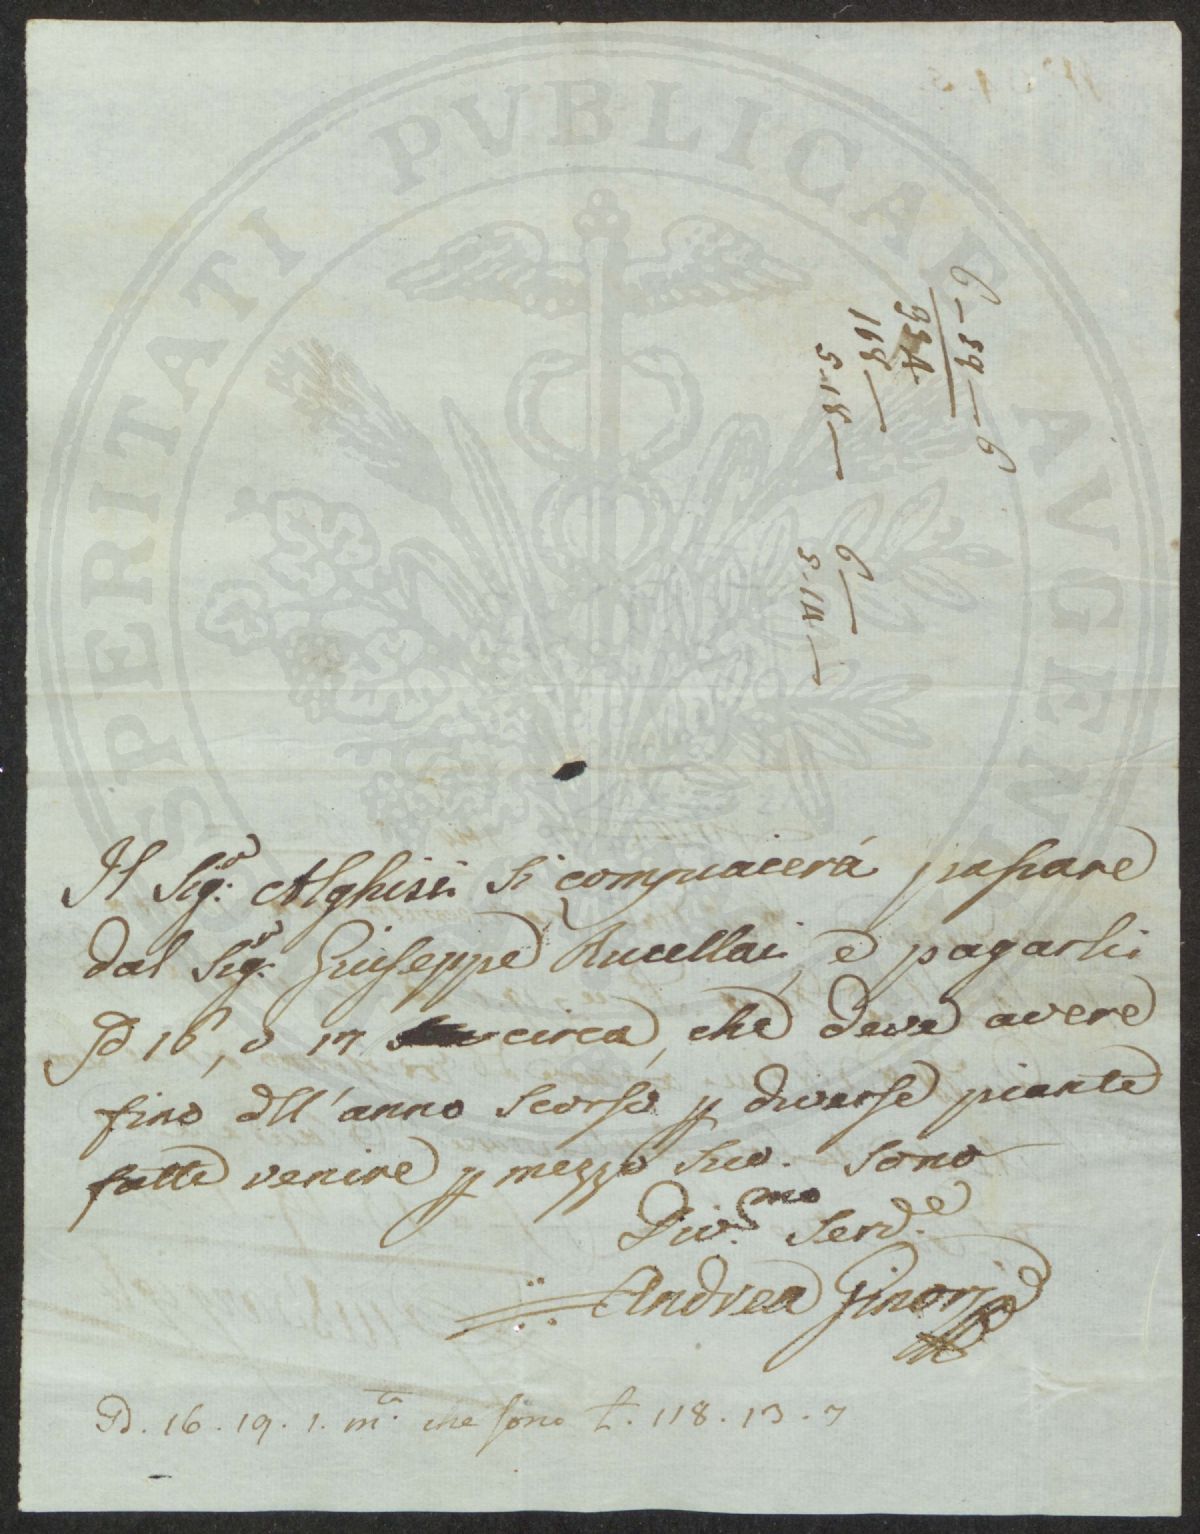 PROSPERITATI PUBLICAE AUGENDAE
6 — 89 — 6
934
168 —
5·18 —
6 —
5·14 —
Il Sig.r Alghisi si compiacerà passare
dal Sig.r Giuseppe Rucellai, e pagarli
16, o 17 circa, che deve avere
fino dll' anno scorso p diverse piante
fatte venire p mezzo suo. Sono
Div.mo Serv.e
Andrea Ginori
16. 19. 1. m.ta che sono £. 118. 13. 7